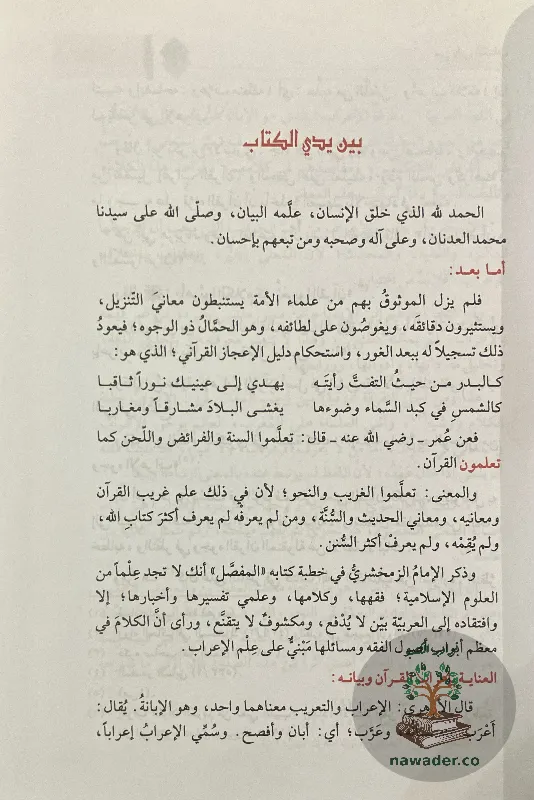 بين يدي الكتاب
الحمد لله الذي خلق الإنسان، علَّمه البيان، وصلّى الله على سيدنا
محمد العدنان، وعلى آله وصحبه ومن تبعهم بإحسان.
أما بعد:
فلم يزل الموثوقُ بهم من علماء الأمة يستنبطون معانيَ التّنزيل،
ويستثيرون دقائقَه، ويغوصُون على لطائفه، وهو الحمَّالُ ذو الوجوه؛ فيعودُ
ذلك تسجيلاً له ببعد الغور، واستحكام دليل الإعجاز القرآني؛ الذي هو:
كـالبـدر مـن حيـثُ التفـتَّ رأيتَـه يهـدي إلـى عينيـك نـوراً ثـاقبـا
كالشمسِ في كبد السَّماء وضوءها يغشـى البـلادَ مشـارقـاً ومغـاربـا
فعن عُمر ـ رضي الله عنه ـ قال: تعلَّموا السنة والفرائض واللّحن كما
تعلمون القرآن.
والمعنى: تعلَّموا الغريب والنحو؛ لأن في ذلك علم غريب القرآن
ومعانيه، ومعاني الحديث والسُّنَّة، ومن لم يعرفْه لم يعرف أكثرَ كتابِ الله،
ولم يُقِمْه، ولم يعرفْ أكثر السُّنن.
وذكر الإمامُ الزمخشريُّ في خطبة كتابه «المفصَّل» أنك لا تجد عِلْماً من
العلوم الإسلامية؛ فقهها، وكلامها، وعلمي تفسيرها وأخبارها؛ إلا
وافتقاده إلى العربيّة بيّن لا يُدْفع، ومكشوفٌ لا يتقنَّع، ورأى أنَّ الكلامَ في
معظم أبواب أصول الفقه ومسائلها مَبْنيٌّ على عِلْم الإعراب.
العناية القرآن وبيانه:
قال الأزهري: الإعراب والتعريب معناهما واحد، وهو الإبانةُ. يُقال:
أَعْرَبَ وعَرَّب؛ أي: أبان وأفصح. وسُمِّي الإعرابُ إعراباً،
nawader.co